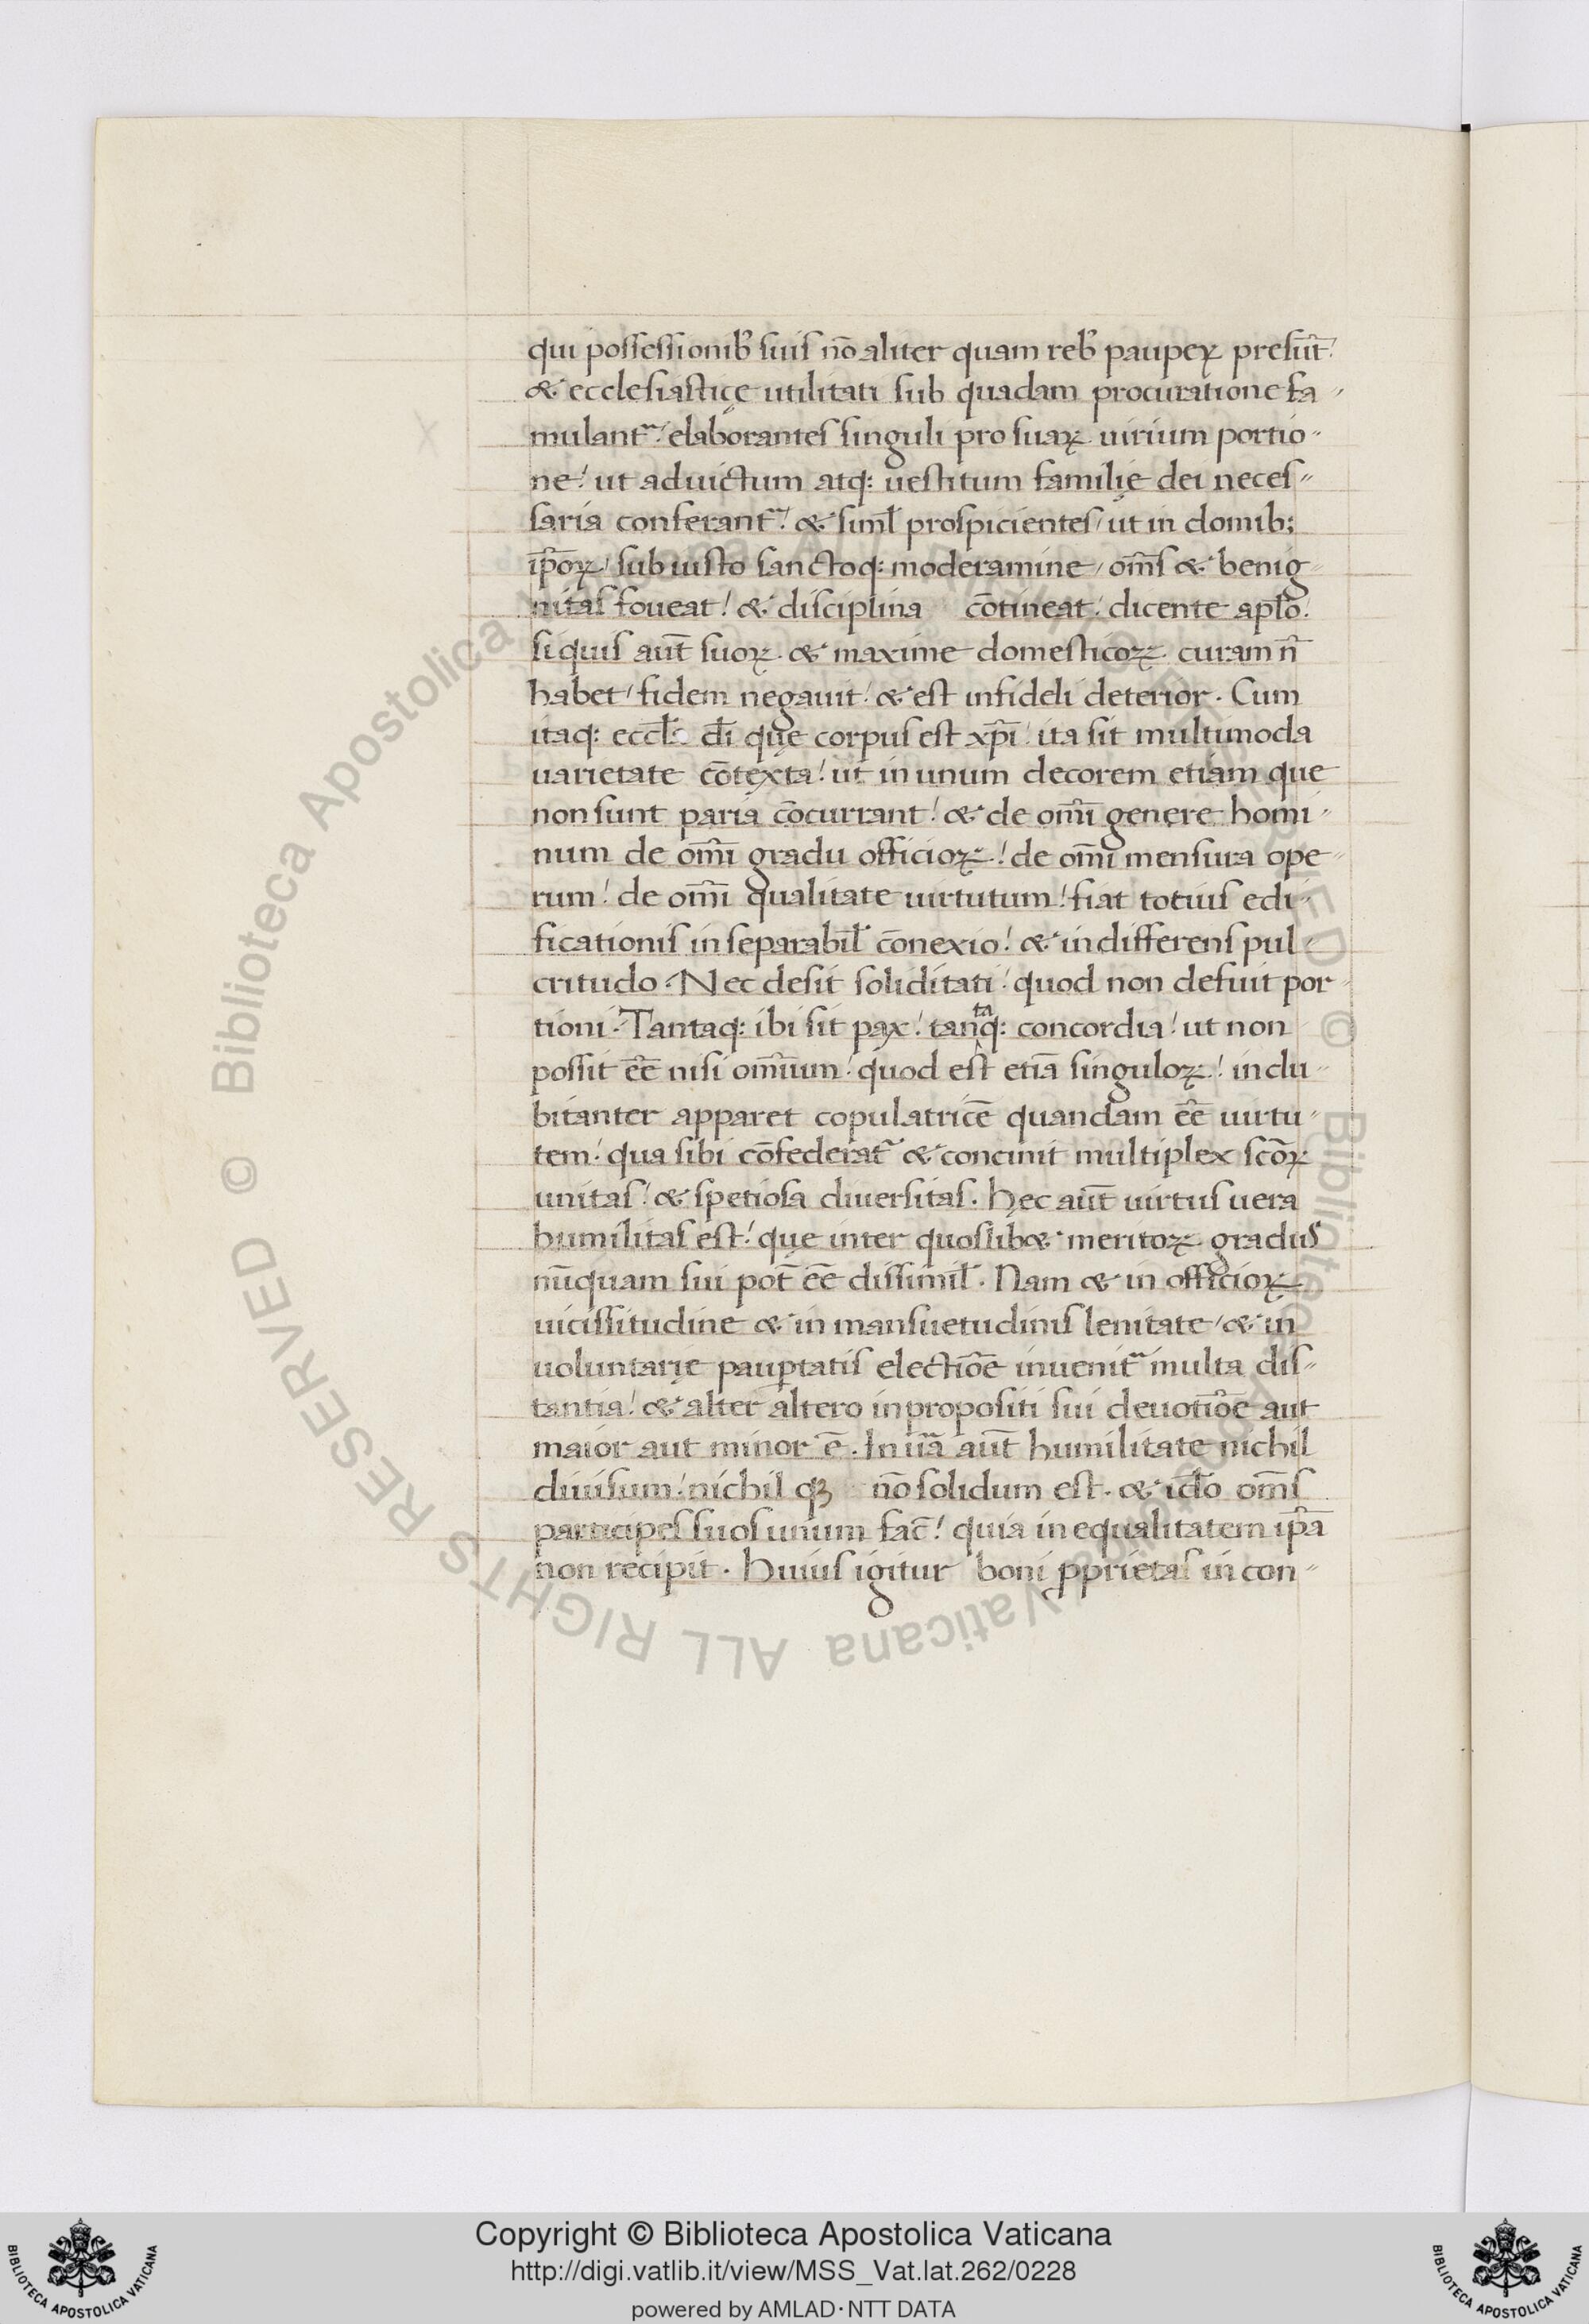 qui possessionib᷒ suis nō aliter quam reb᷒ paupeꝝ presūt.
& ecclesiasticę utilitati sub quadam procuratione fa-
mulantʳ elaborantes singuli pro suaꝝ uirium portio-
ne! ut aduictum atq: uestitum familię dei neces-
saria conferantʳ! & siml̄ prospicientes, ut in domib;
ip̄oꝝ, sub iusto sanctoq: moderamine, om̄s & benig-
nitas foueat! & disciplina cōtineat, dicente apl̄o.
si quis aut̄ suoꝝ. & maxime domesticoꝝ. curam n̄
habet, fidem negauit, & est infideli deterior. Cum
itaq: eccl̄ dī quę corpus est xp̄i, ita sit multimoda
uarietate cōtexta! ut in unum decorem etiam que
non sunt paria cōcurrant! & de om̄i genere homi-
num de om̄i gradu officioꝝ.! de om̄i mensura ope-
rum! de om̄i qualitate uirtutum! fiat totius edi-
ficationis inseparabil̄ cōnexio! & indifferens pul-
critudo. Nec desit soliditati, quod non defuit por-
tioni. Tantaq: ibi sit pax! tantaq: concordia! ut non
possit ēē nisi om̄ium! quod est etiā singuloꝝ! indu-
bitanter apparet copulatricē quandam ēē uirtu-
tem. qua sibi cōfederatʳ & concinit multiplex sc̄oꝝ
unitas! & spetiosa diuersitas. Hęc aut̄ uirtus uera
humilitas est! quę inter quoslib& meritoꝝ. gradus
nūquam sui pot̄ ēē dissimil̄. Nam & in officioꝝ
uicissitudine & in mansuetudinis lenitate, & in
uoluntarię paup̱tatis electiōe inuenitʳ multa dis-
tantia! & alter altero in propositi sui deuotiōe aut
maior aut minor ē. In uā aut̄ humilitate nichil
diuisum! nichil qꝫ nō solidum est. & id̄o om̄s
participes suos unium fac̄! quia in equalitatem ip̄a
non recipit. Huius igitur boni ꝓprietas in con-
Copyright © Biblioteca Apostolica Vaticana
http://digi.vatlib.it/view/MSS_Vat.lat.262/0228
powered by AMLAD · NTT DATA